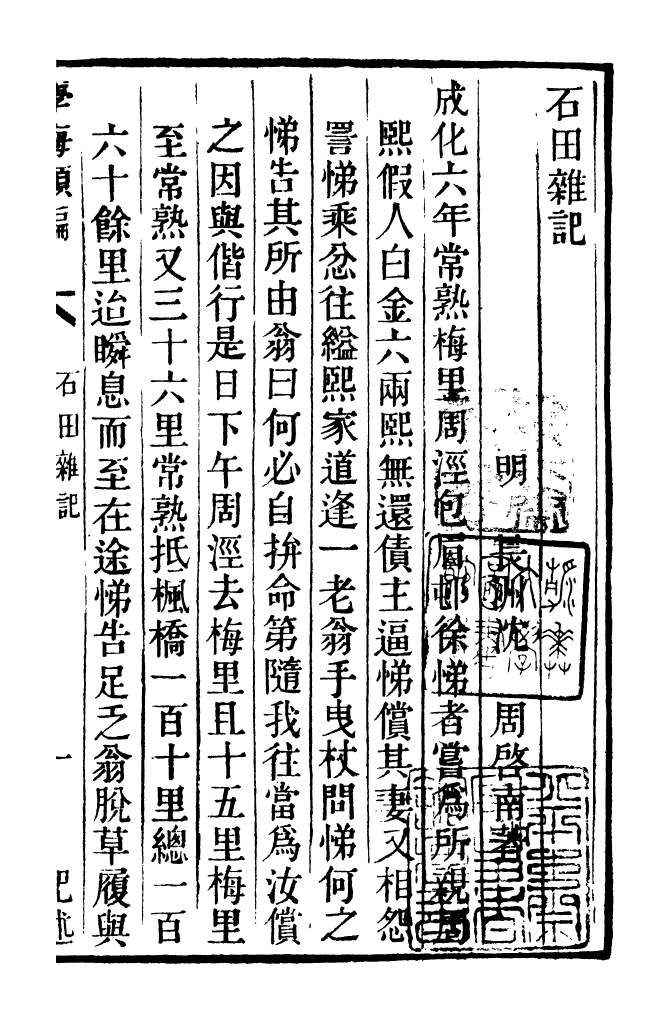 石田雜記
明 長洲沈 周啓南著
成化六年常熟梅里周涇包厝邨徐悌者嘗爲所親周
熙假人白金六兩熙無還債主逼悌償其妻又相怨
詈悌乘忿往縊熙家道逢一老翁手曳杖問悌何之
悌告其所由翁曰何必自拚命第隨我往當爲汝償
之因與偕行是日下午周涇去梅里且十五里梅里
至常熟又三十六里常熟抵楓橋一百十里總一百
六十餘里迨瞬息而至在途悌告足乏翁脫草履與
學海類編 石田雜記 一 記述